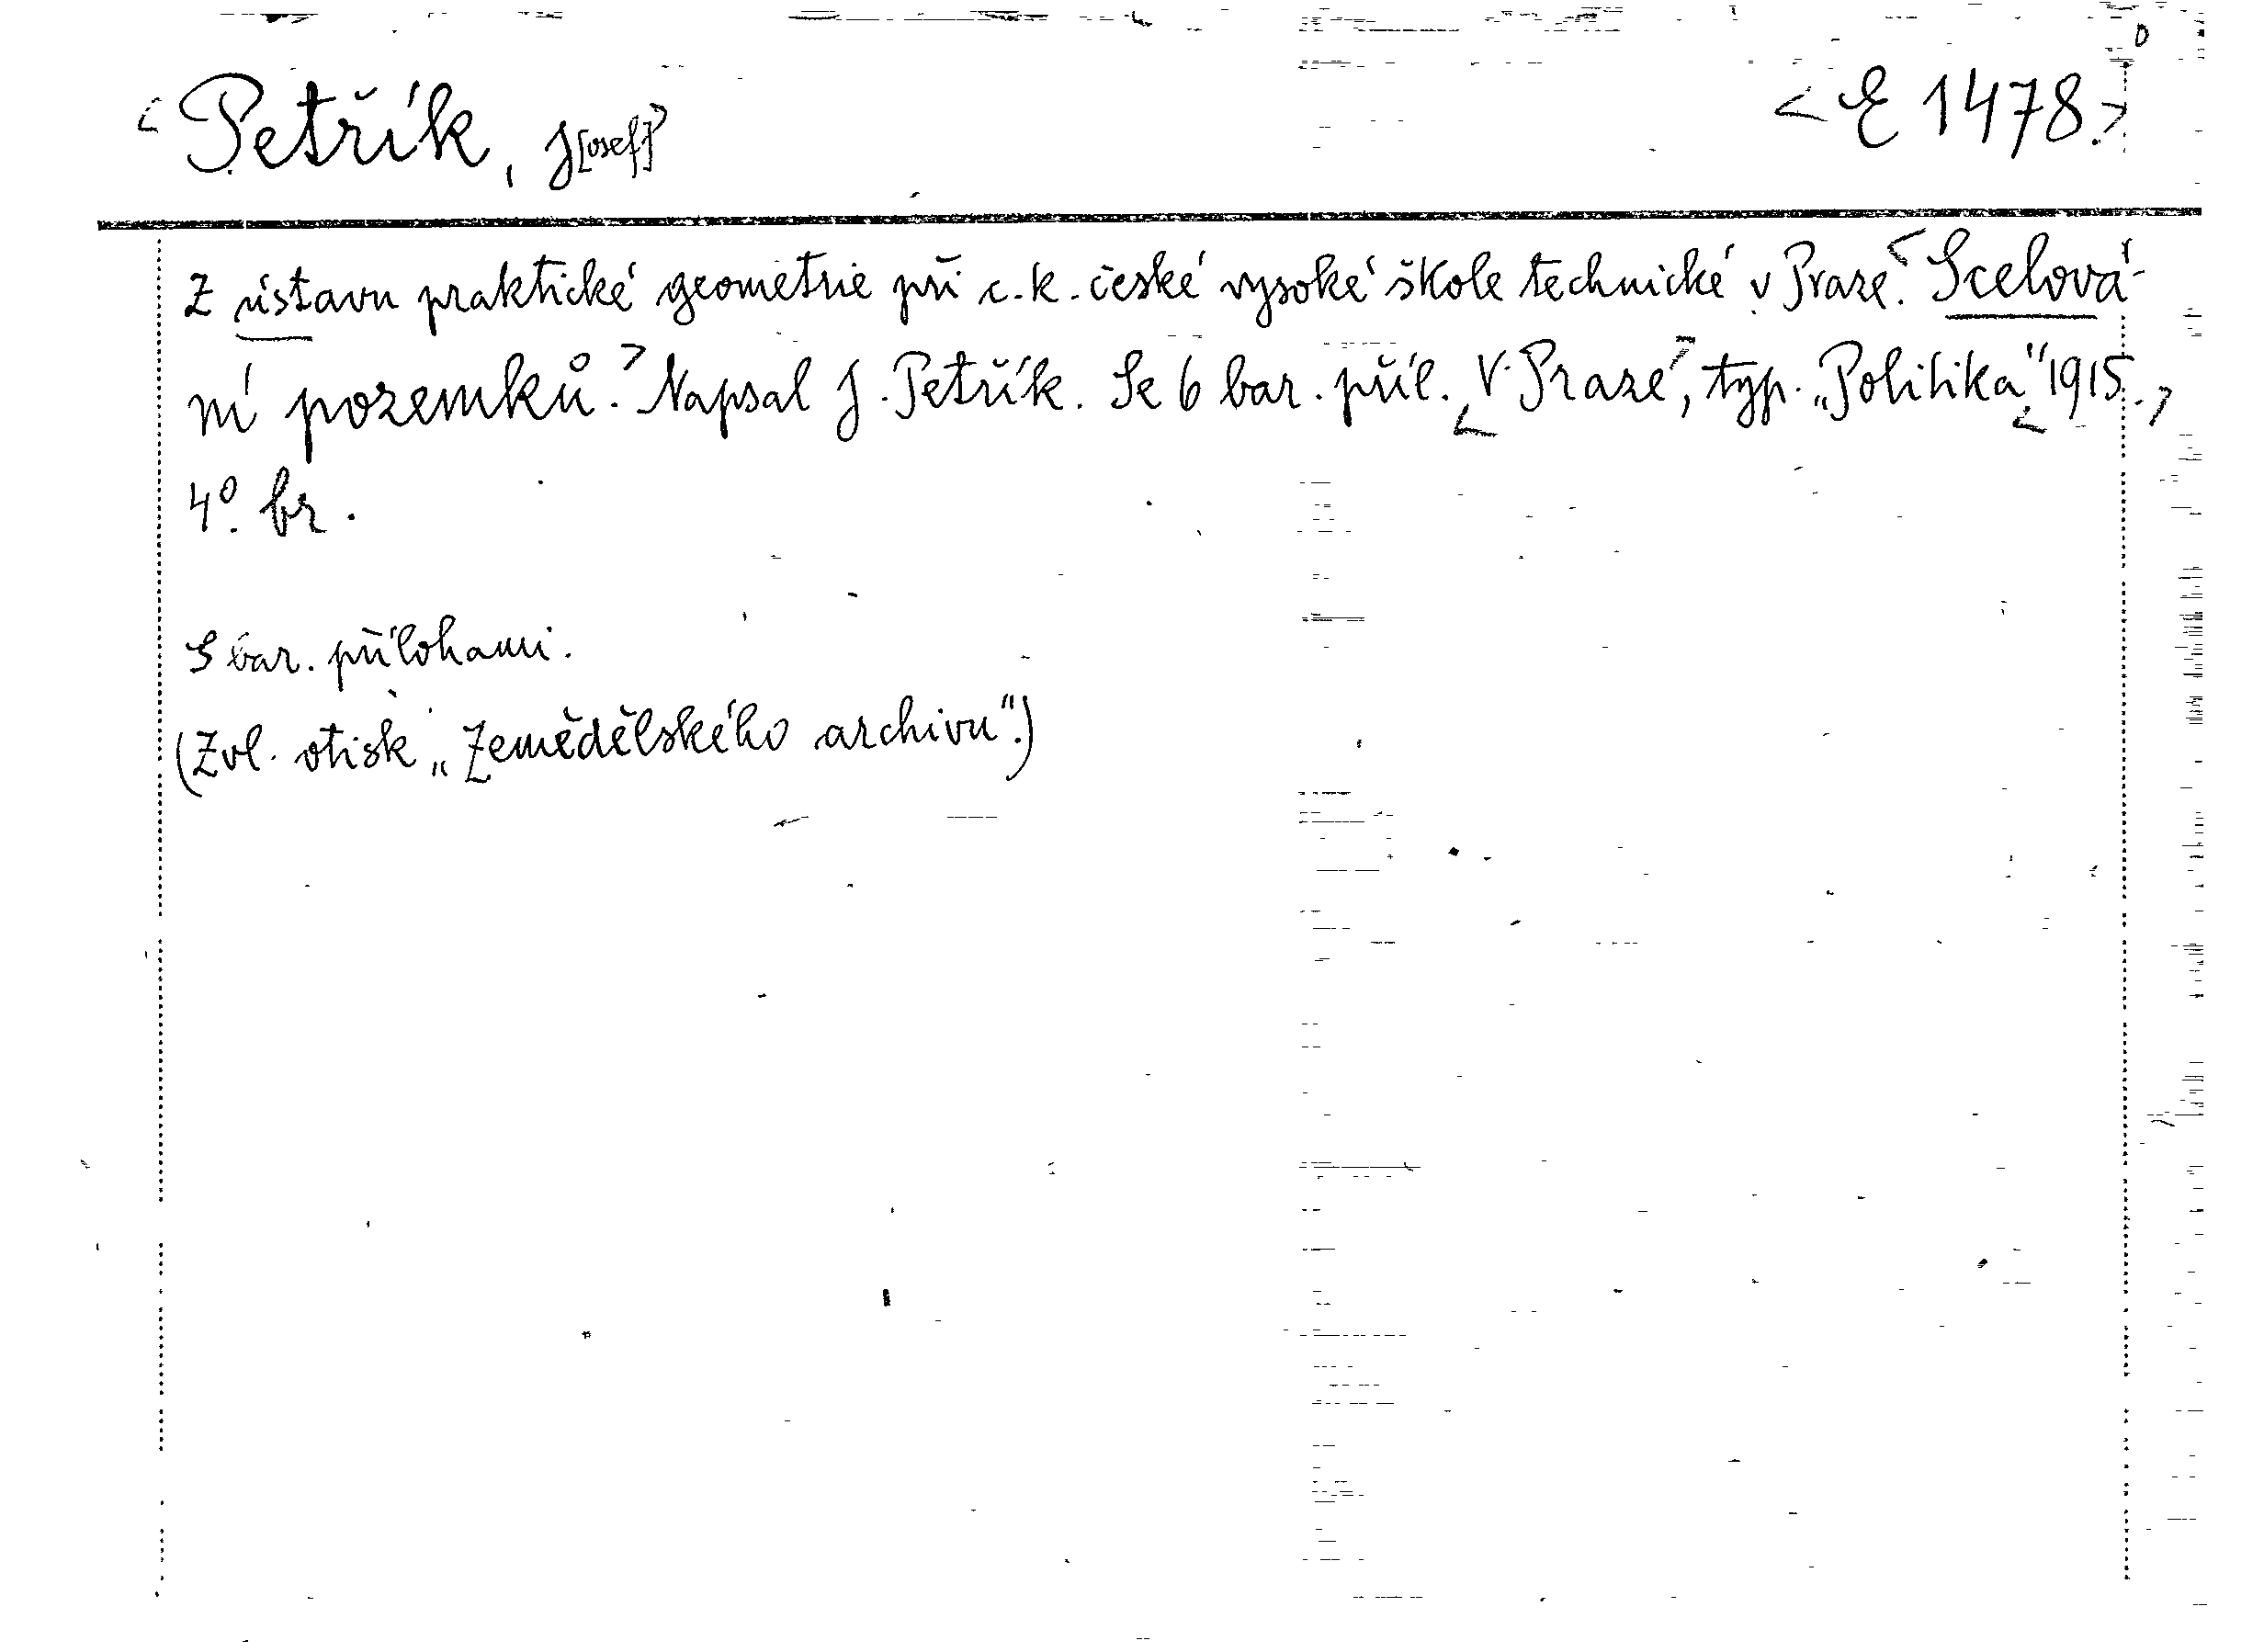 <Petřík, J[osef]> <E 1478.>
Z ústavu praktické geometrie při c. k. české vysoké škole technické v Praze. <Scelová-
ní pozemků.> Napsal J. Petřík. Se 6 bar. příl. <V Praze>, typ. „Politika“ <1915.>
4°. br.
S bar. přílohami.
(Zvl. otisk „Zemědělského archivu“.)